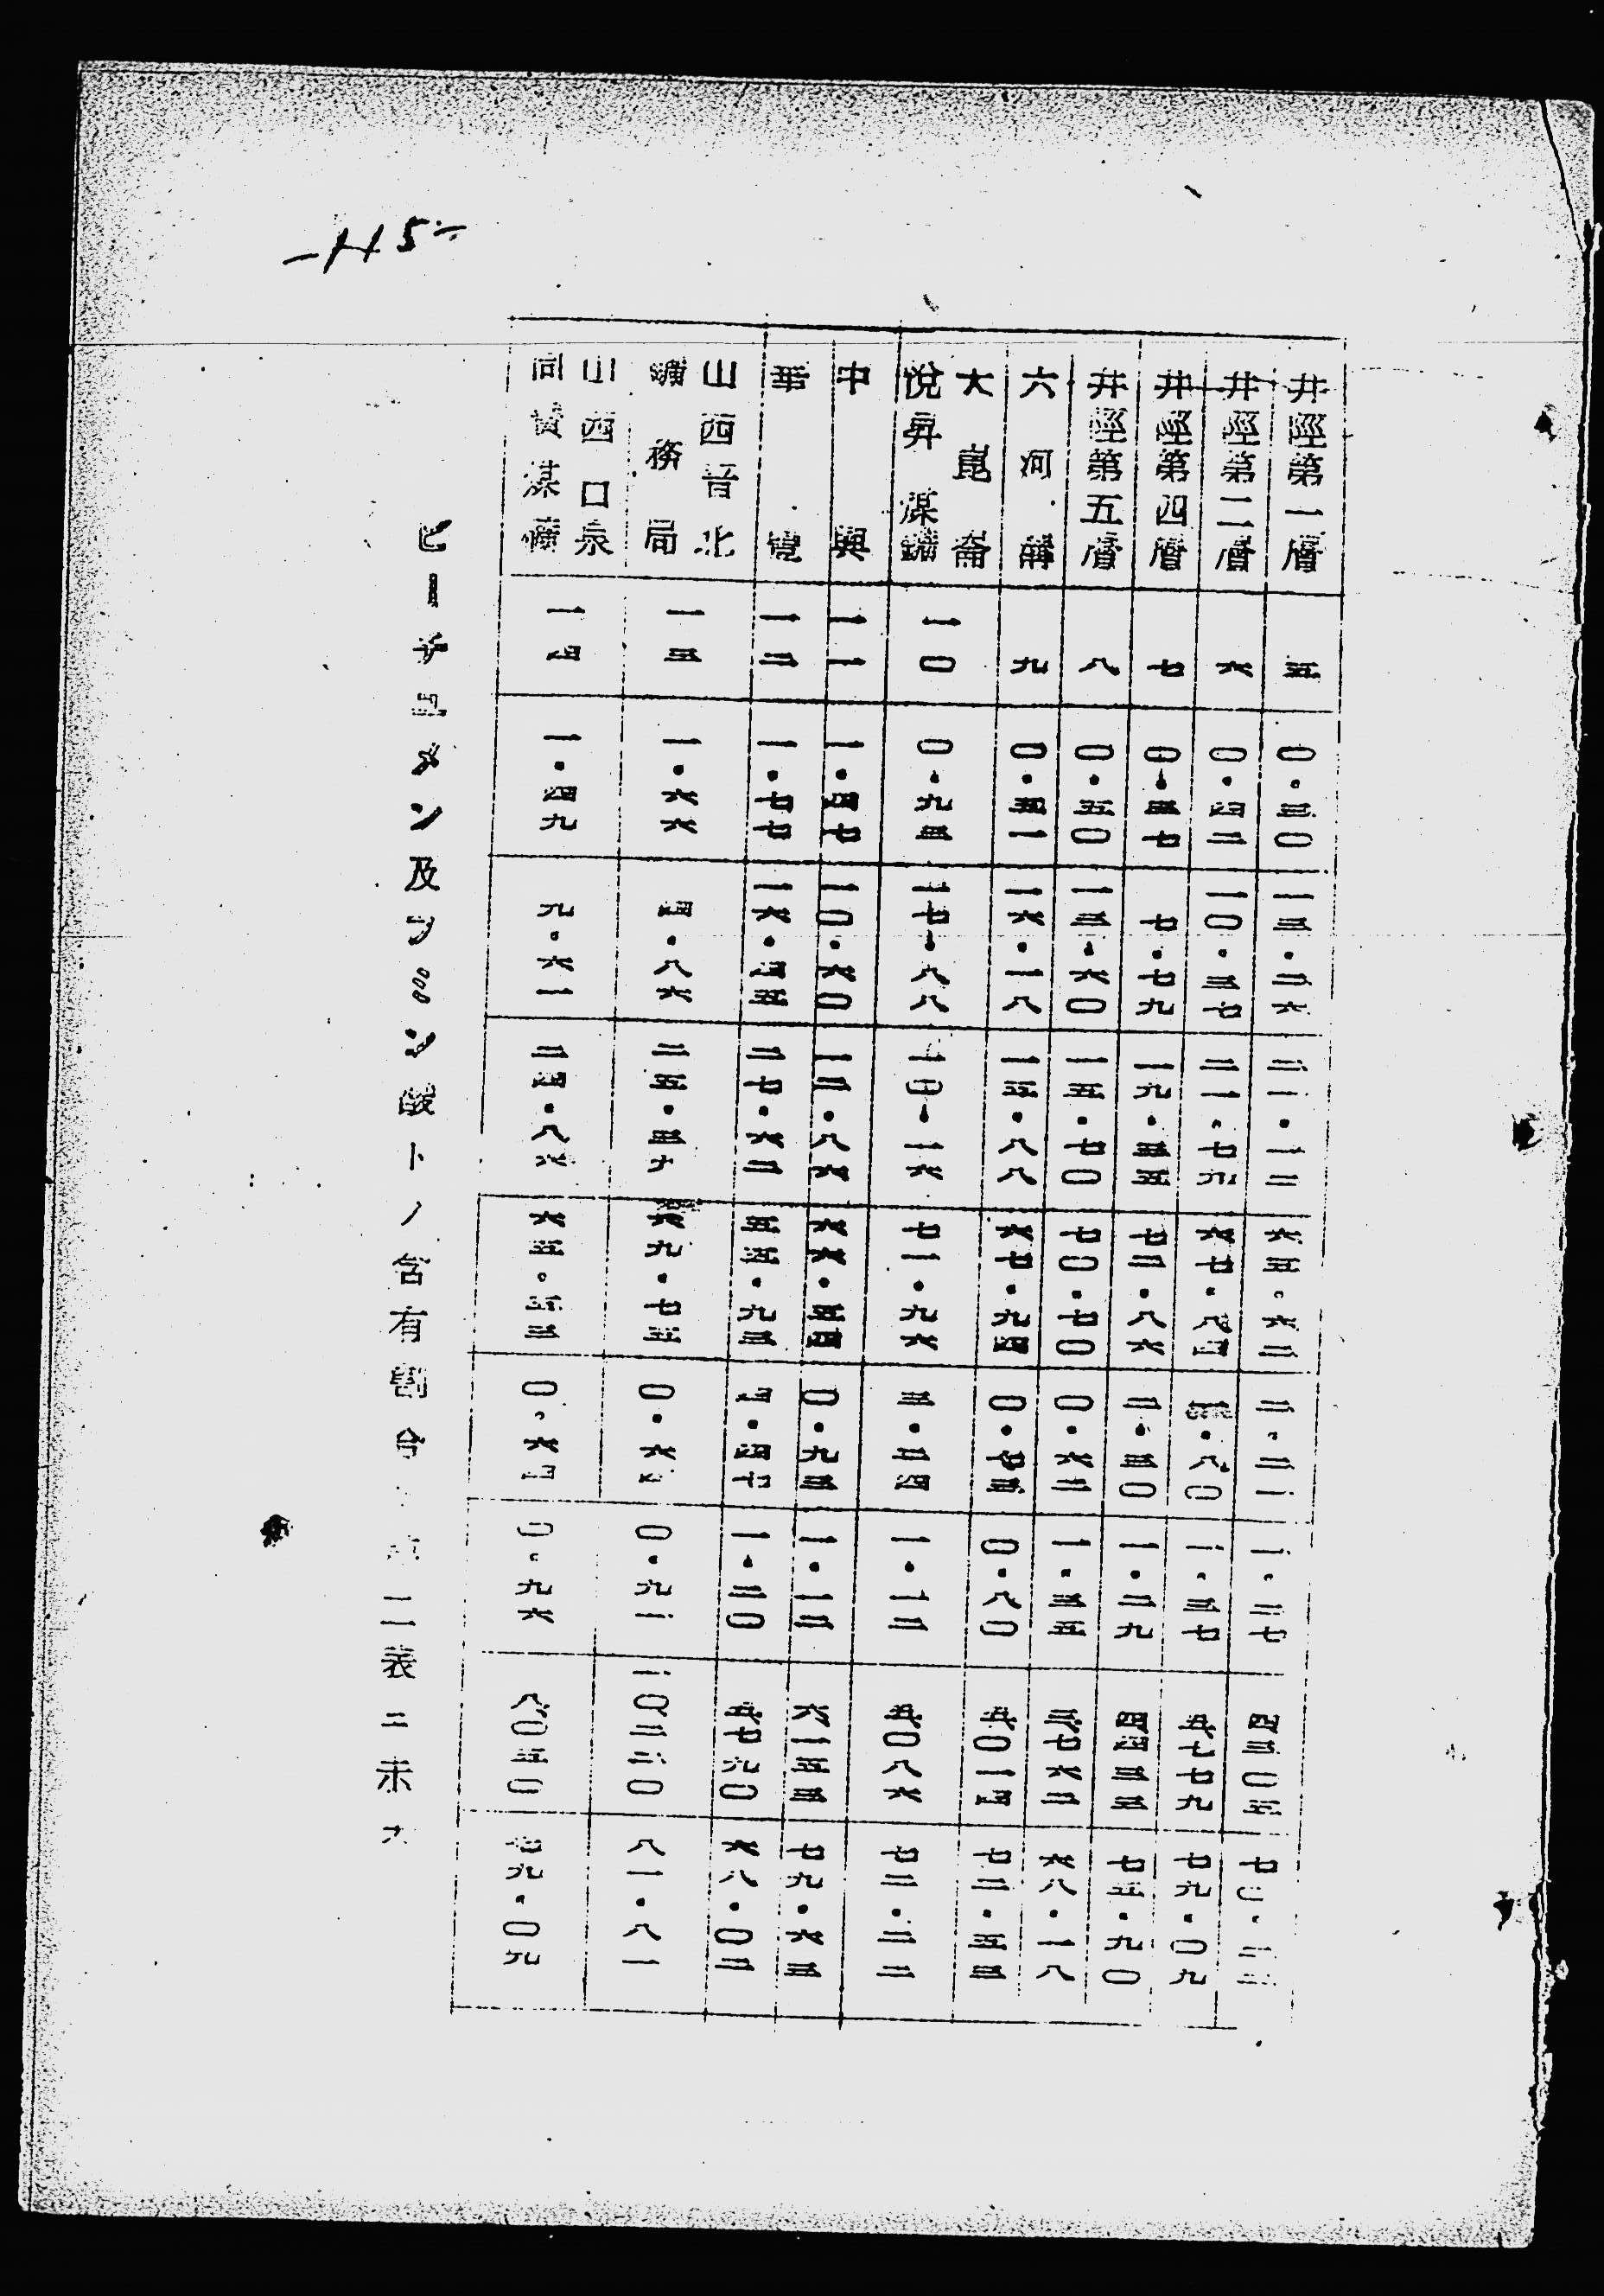 -115-
井陘第一層 五 〇・三〇 一三・二六 二一・一二 六五・六二 二・二一 一・二七 四三〇五 七
井陘第二層 六 〇・四二 一〇・三七 二一・七九 六七・八四 八〇 一・三七 五七七九 七九・〇九
井陘第四層 七 〇・三七 七・七九 一九・五五 七二・八六 二・三〇 一・二九 四四三三 七五・九〇
井陘第五層 八 〇・五〇 一三・六〇 一五・七〇 七〇・七〇 〇・六二 一・三五 三七六二 六八・一八
六河溝 九 〇・五一 一六・一八 一五・八八 六七・九四 〇・七三 〇・八〇 五〇一四 七二・五三
大崑崙
悅昇煤鑛 一〇 〇・九三 一七・八八 一〇・一六 七一・九六 三・二四 一・一二 五〇八六 七二・二二
中興 一一 一・四七 一〇・六〇 一二・八六 六六・五四 〇・九三 一・一二 六一五三 七九・六三
華寶 一二 一・七七 一六・四五 二七・六二 五五・九三 四・四七 一・二〇 五七九〇 六八・〇二
山西晉北
鑛務局 一三 一・六六 四・八六 二五・三 六九・七五 〇・六四 〇・九一 一〇二二〇 八一・八一
山西口泉
同寶煤鑛 一四 一・四九 九・六一 二四・八六 六五・五三 〇・六四 〇・九六 八〇五〇 七九・〇九
ビーチユメン及フミン酸トノ含有割合 第二表ニ示ス